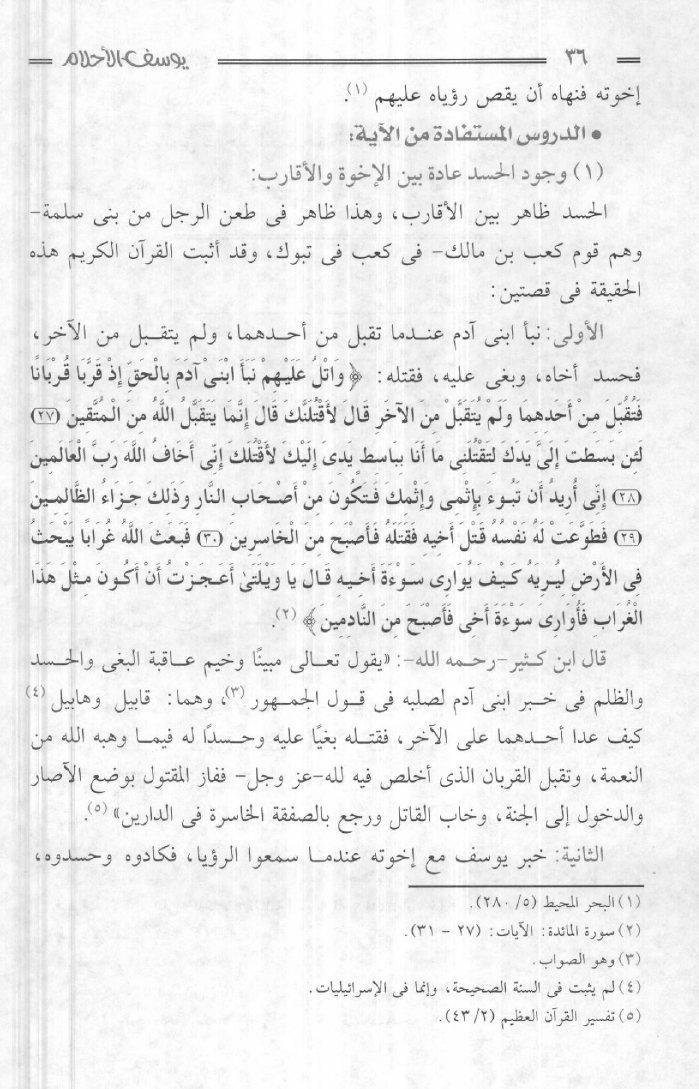 ٣٦ يوسف الأحلام
إخوته فنهاه أن يقص رؤياه عليهم (١).
• الدروس المستفادة من الآية:
(١) وجود الحسد عادة بين الإخوة والأقارب:
الحسد ظاهر بين الأقارب، وهذا ظاهر فى طعن الرجل من بنى سلمة-
وهم قوم كعب بن مالك- فى كعب فى تبوك، وقد أثبت القرآن الكريم هذه
الحقيقة فى قصتين:
الأولى: نبأ ابنى آدم عندما تقبل من أحدهما، ولم يتقبل من الآخر،
فحسد أخاه، وبغى عليه، فقتله: ﴿وَاتْلُ عَلَيْهِمْ نَبَأَ ابْنَىْ آدَمَ بِالْحَقِّ إِذْ قَرَّبَا قُرْبَانًا
فَتُقُبِّلَ مِنْ أَحَدِهِمَا وَلَمْ يُتَقَبَّلْ مِنَ الآخَرِ قَالَ لأَقْتُلَنَّكَ قَالَ إِنَّمَا يَتَقَبَّلُ اللَّهُ مِنَ الْمُتَّقِينَ (٢٧)
لَئِن بَسَطتَ إِلَىَّ يَدَكَ لِتَقْتُلَنِى مَا أَنَا بِبَاسِطٍ يَدِىَ إِلَيْكَ لأَقْتُلَكَ إِنِّى أَخَافُ اللَّهَ رَبَّ الْعَالَمِينَ
(٢٨) إِنِّى أُرِيدُ أَن تَبُوءَ بِإِثْمِى وَإِثْمِكَ فَتَكُونَ مِنْ أَصْحَابِ النَّارِ وَذَلِكَ جَزَاءُ الظَّالِمِينَ
(٢٩) فَطَوَّعَتْ لَهُ نَفْسُهُ قَتْلَ أَخِيهِ فَقَتَلَهُ فَأَصْبَحَ مِنَ الْخَاسِرِينَ (٣٠) فَبَعَثَ اللَّهُ غُرَابًا يَبْحَثُ
فِى الأَرْضِ لِيُرِيَهُ كَيْفَ يُوَارِى سَوْءَةَ أَخِيهِ قَالَ يَا وَيْلَتَىٰ أَعَجَزْتُ أَنْ أَكُونَ مِثْلَ هَذَا
الْغُرَابِ فَأُوَارِىَ سَوْءَةَ أَخِى فَأَصْبَحَ مِنَ النَّادِمِينَ﴾ (٢).
قال ابن كثير-رحمه الله-: «يقول تعالى مبينًا وخيم عاقبة البغى والحسد
والظلم فى خبر ابنى آدم لصلبه فى قول الجمهور (٣)، وهما: قابيل وهابيل (٤)
كيف عدا أحدهما على الآخر، فقتله بغيًا عليه وحسدًا له فيما وهبه الله من
النعمة، وتقبل القربان الذى أخلص فيه لله-عز وجل- ففاز المقتول بوضع الآصار
والدخول إلى الجنة، وخاب القاتل ورجع بالصفقة الخاسرة فى الدارين» (٥).
الثانية: خبر يوسف مع إخوته عندما سمعوا الرؤيا، فكادوه وحسدوه،
(١) البحر المحيط (٥/ ٢٨٠).
(٢) سورة المائدة: الآيات: (٢٧ - ٣١).
(٣) وهو الصواب.
(٤) لم يثبت فى السنة الصحيحة، وإنما فى الإسرائيليات.
(٥) تفسير القرآن العظيم (٢/ ٤٣).